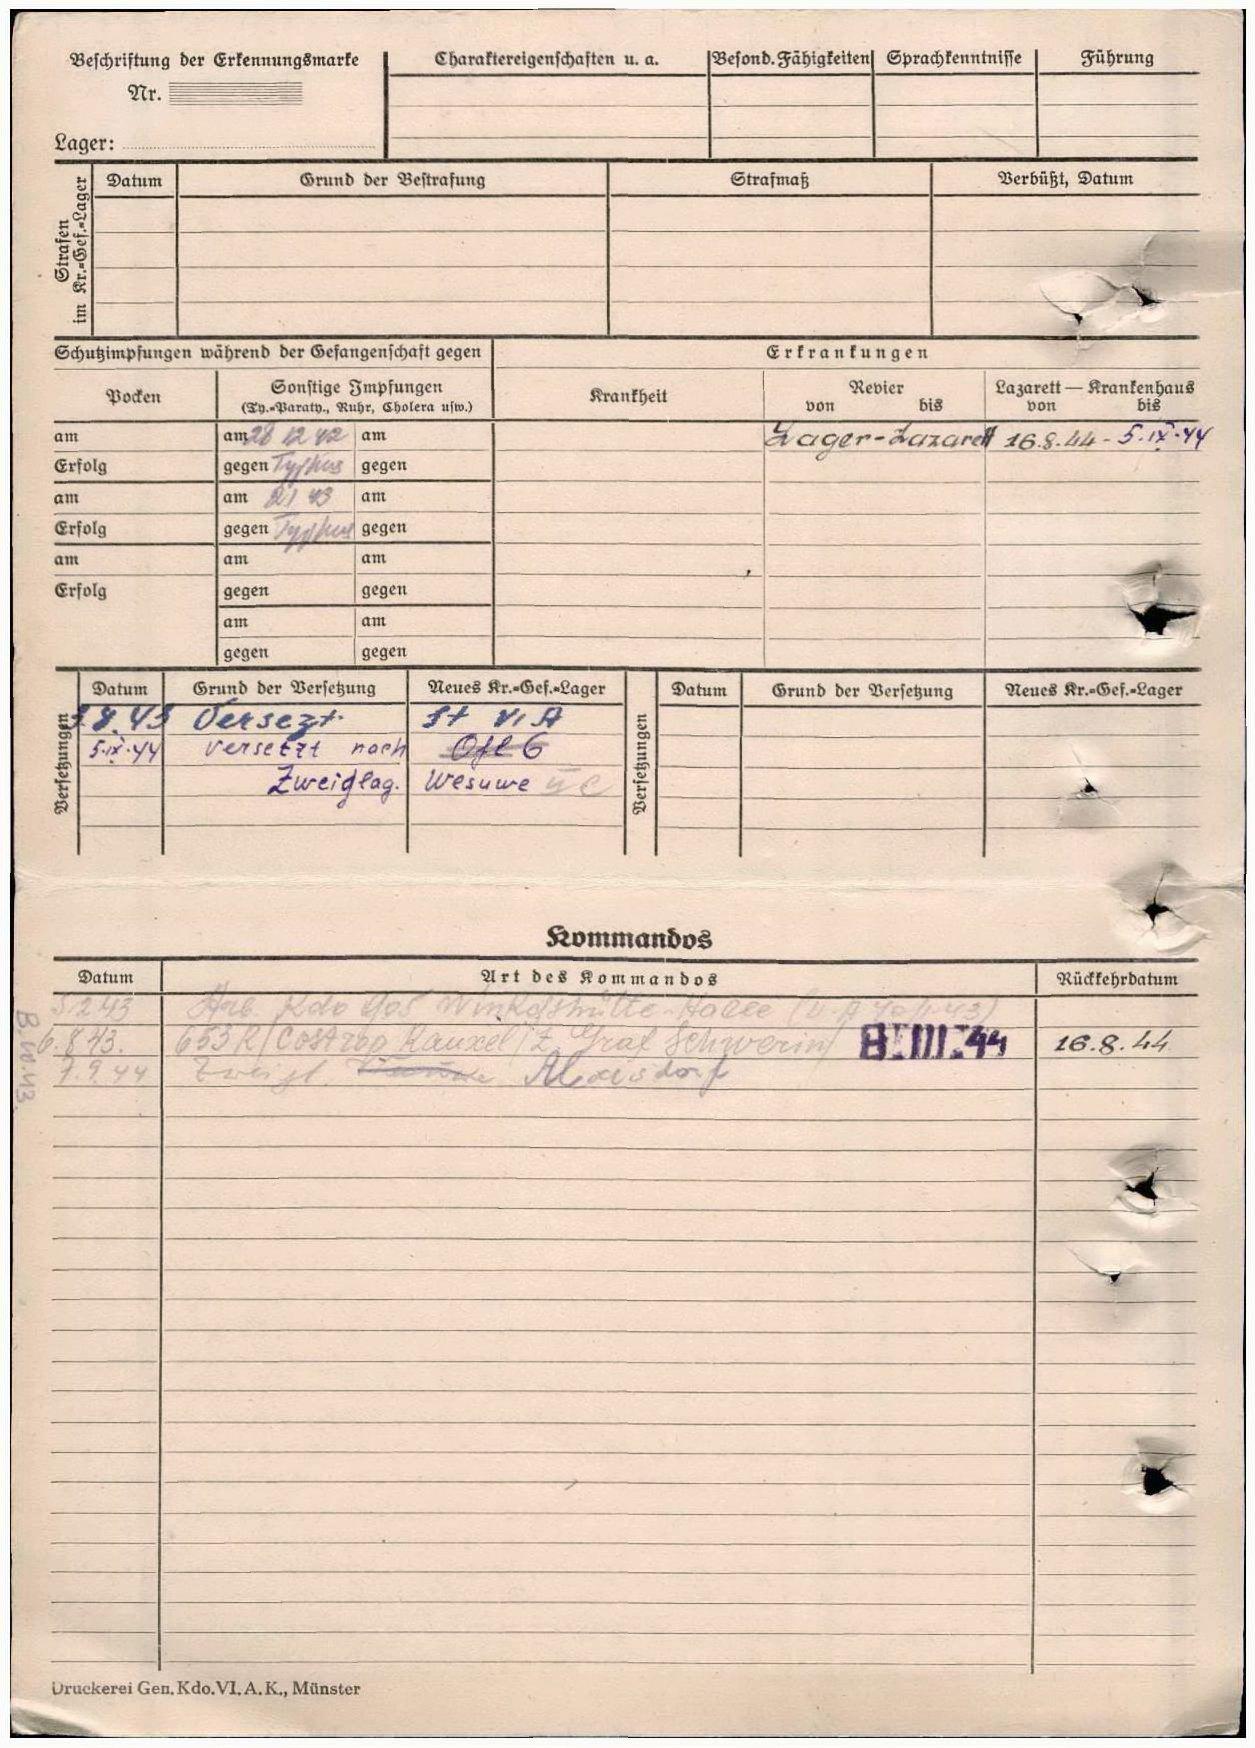 Beschriftung der Erkennungsmarke
Nr.
Lager:
Charaktereigenschaften u. a. Besond. Fähigkeiten Sprachkenntnisse Führung
Strafen im Kr.=Gef.=Lager
Datum Grund der Bestrafung Strafmaß Verbüßt, Datum
Schutzimpfungen während der Gefangenschaft gegen Erkrankungen
Pocken Sonstige Impfungen Krankheit Revier Lazarett — Krankenhaus
(Ty.=Paraty., Ruhr, Cholera usw.) von bis von bis
am am 28 12 42 am Lager-Lazarett 16.8.44 - 5.IX.44
Erfolg gegen Typhus gegen
am am 2 1 43 am
Erfolg gegen Typhus gegen
am am am
Erfolg gegen gegen
am am
gegen gegen
Versetzungen
Datum Grund der Versetzung Neues Kr.=Gef.=Lager
8.43 Versezt. St VI A
5.IX.44 versetzt nach Ofl 6
Zweiglag. Wesuwe VI C
Versetzungen
Datum Grund der Versetzung Neues Kr.=Gef.=Lager
Kommandos
Datum Art des Kommandos Rückkehrdatum
5.2.43 Arb. Kdo
6.8.43. 653 R/Castrop Rauxel/Z. Graf Schwerin/ 8.III.44 16.8.44
7.9.44 Zweigl.
Druckerei Gen. Kdo. VI. A. K., Münster